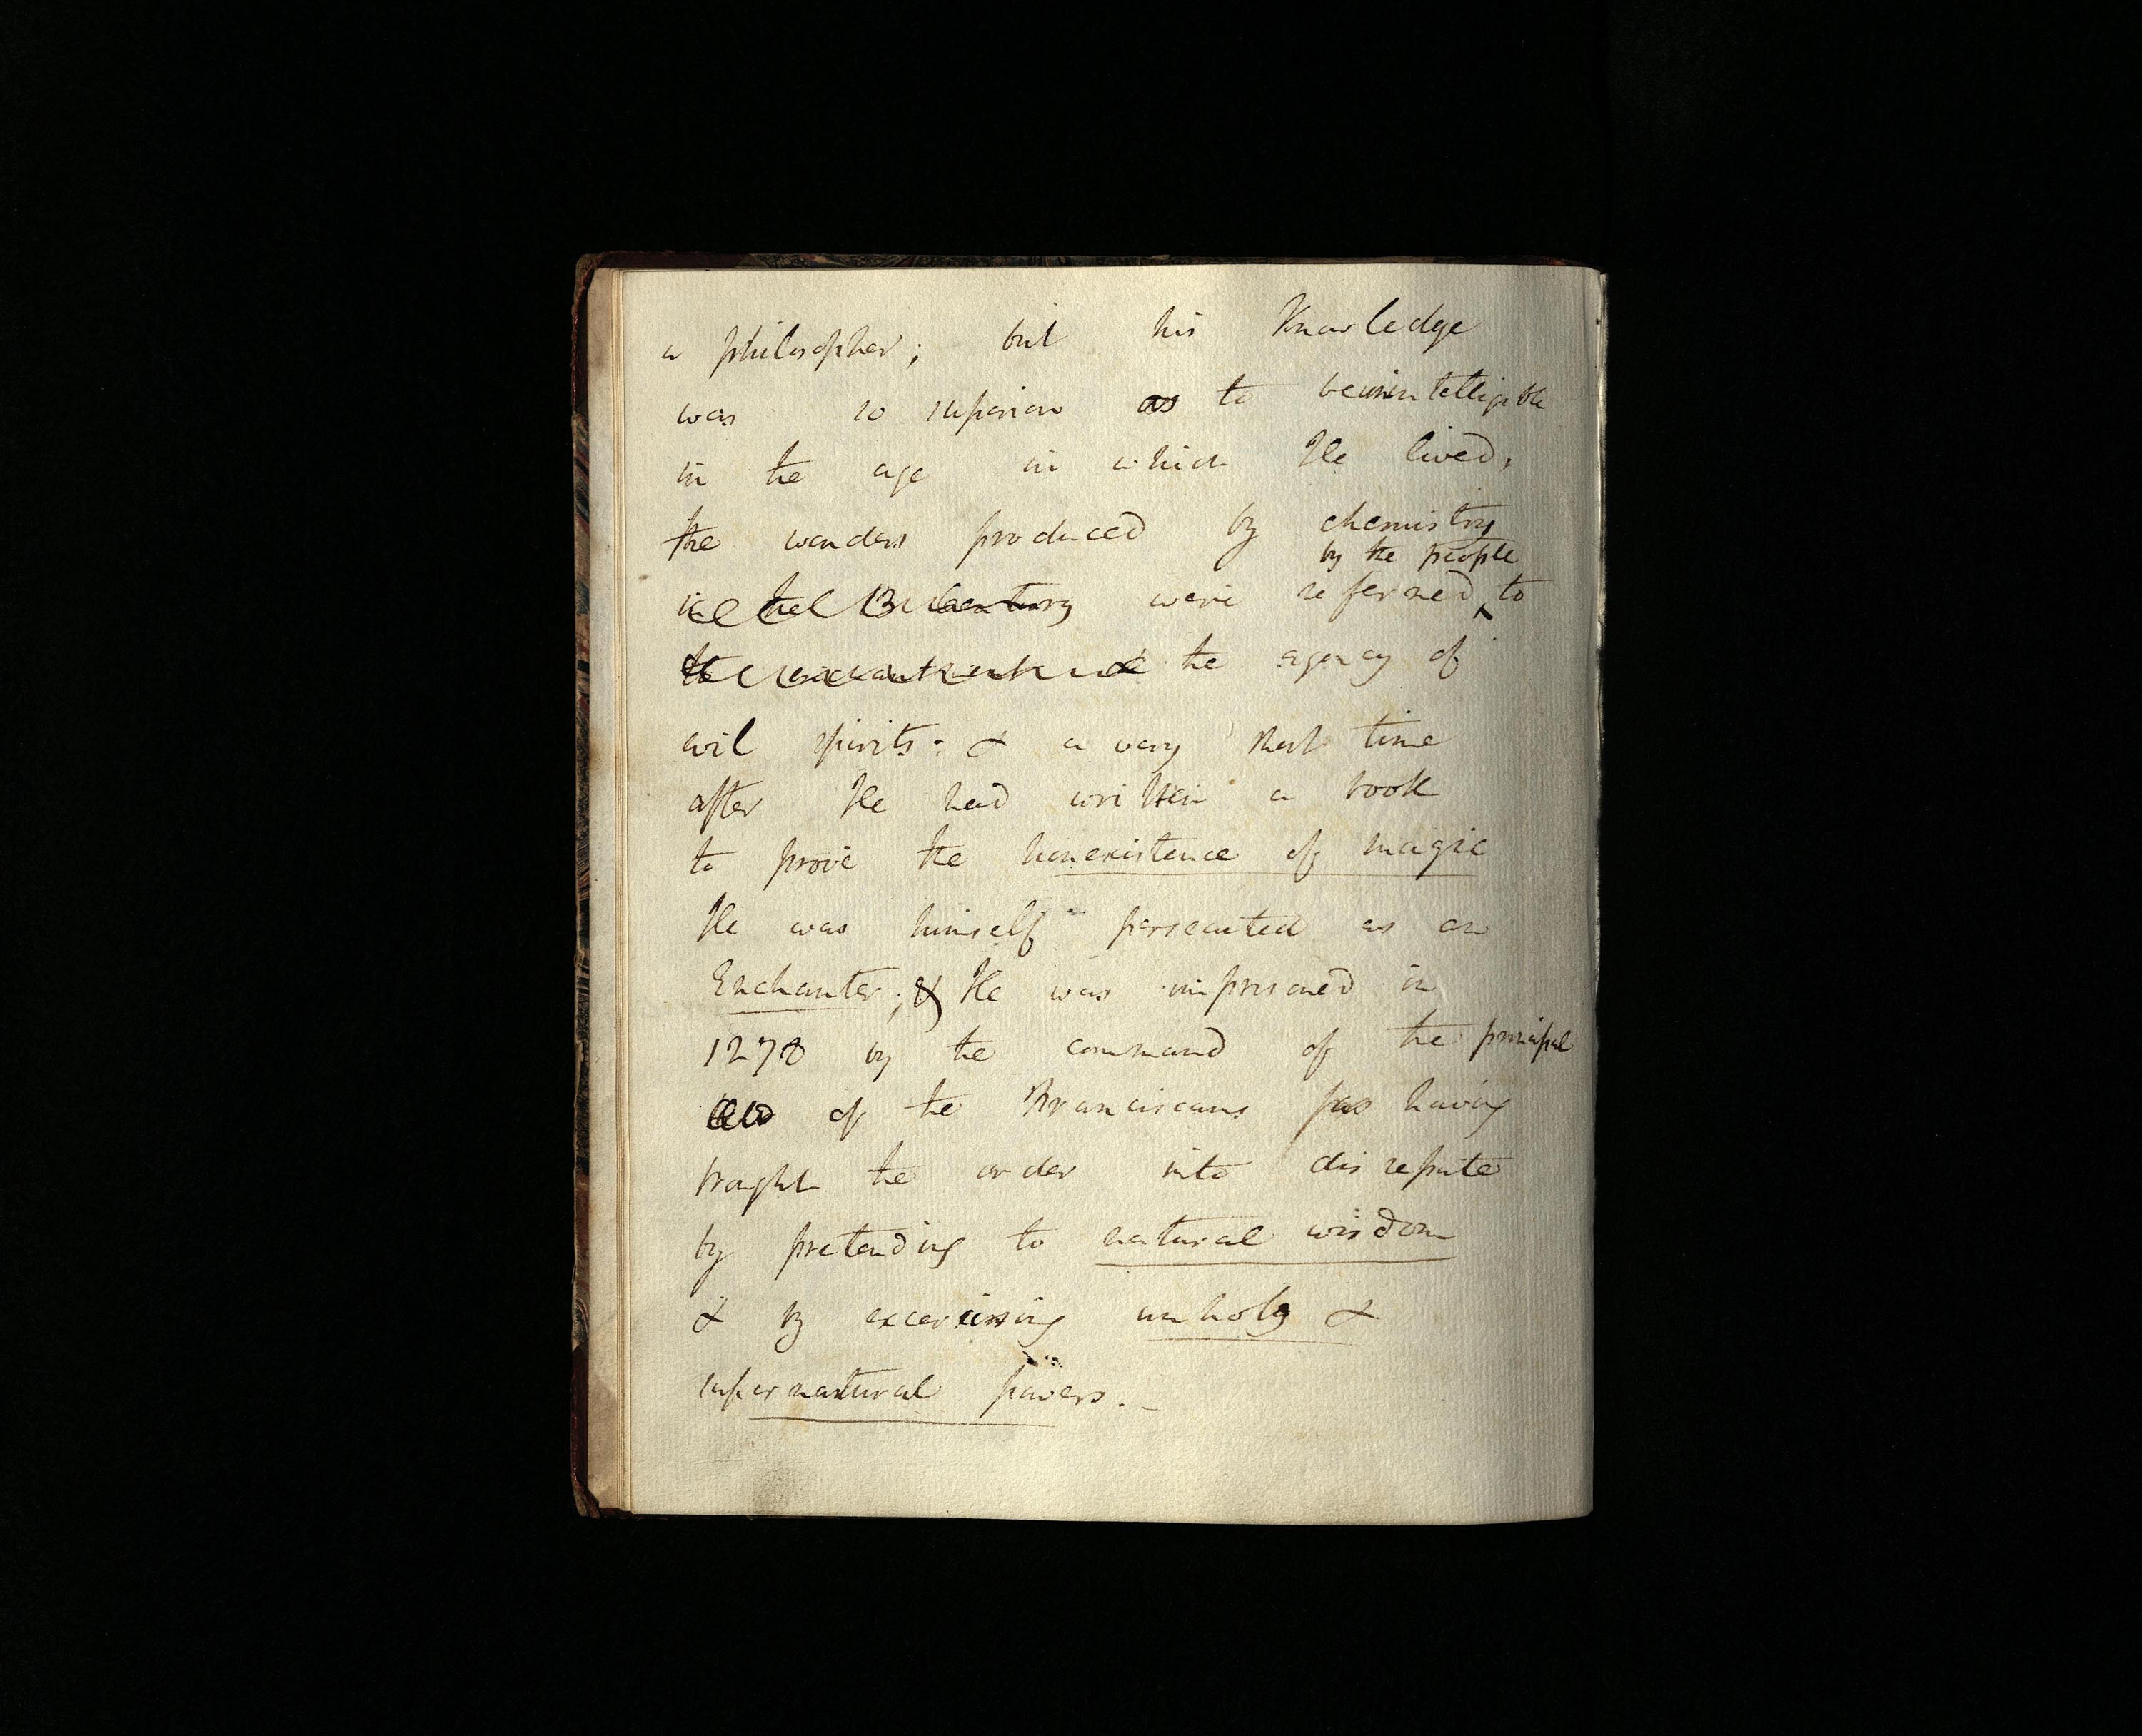 a philosopher; but his Knowledge
was so superior as to be unintelligible
in the age in which He lived,
the wonders produced by chemistry
by the people
in the 13 century were referred to
the the agency of
evil spirits: & a very short time
after He had written a book
to prove the nonexistence of magic
He was himself persecuted as an
Enchanter; & He was imprisoned in
1278 by the command of the principal
of the Franciscans for having
brought the order into disrepute
by pretending to natural wisdom
& by excercising unholy &
supernatural powers. –